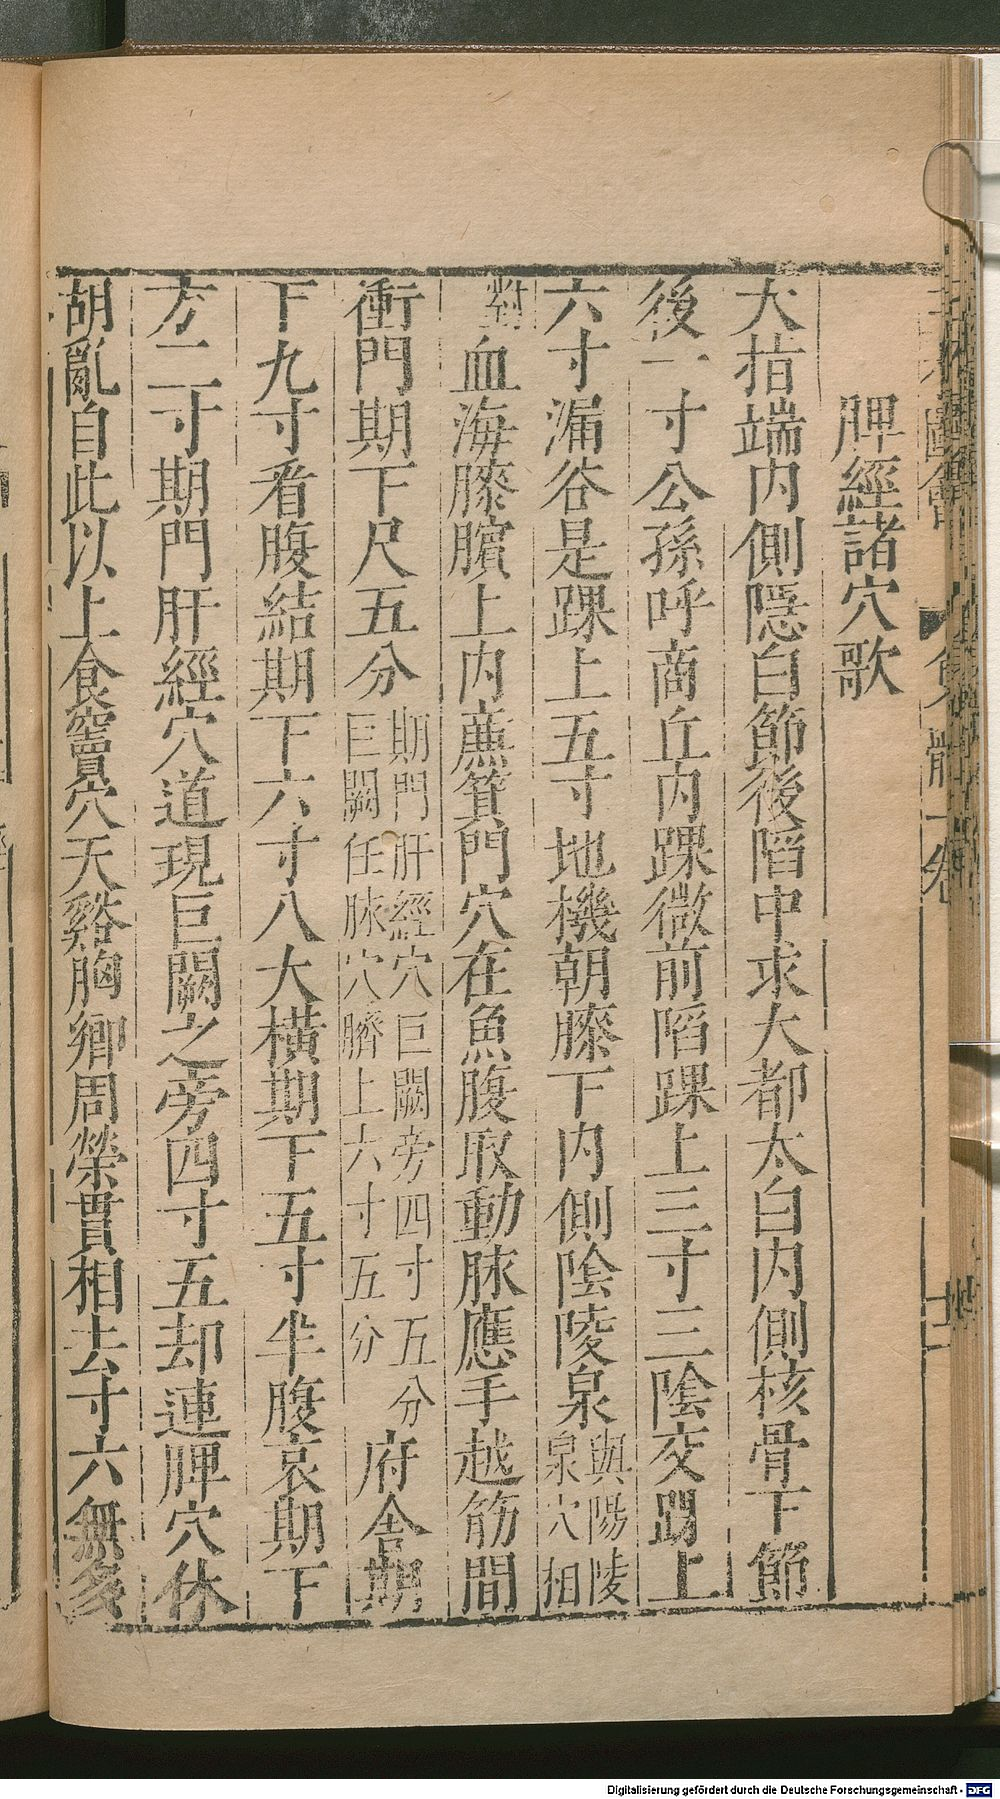 脾經諸穴歌
大指端内側隱白節後陷中求大都太白内側核骨下節
後一寸公孫呼商丘内踝微前陷踝上三寸三陰交踝上
六寸漏谷是踝上五寸地機朝膝下内側陰陵泉與陽陵泉穴相
對血海膝臏上内亷箕門穴在魚腹取動脉應手越筋間
衝門期下尺五分期門肝經穴巨闕旁四寸五分巨闕任脉穴臍上六寸五分府舍期
下九寸看腹結期下六寸八大横期下五寸半腹哀期下
方二寸期門肝經穴道現巨闕之旁四寸五却連脾穴休
胡亂自此以上食竇穴天谿胸鄉周榮貫相去寸六無多
Digitalisierung gefördert durch die Deutsche Forschungsgemeinschaft - DFG